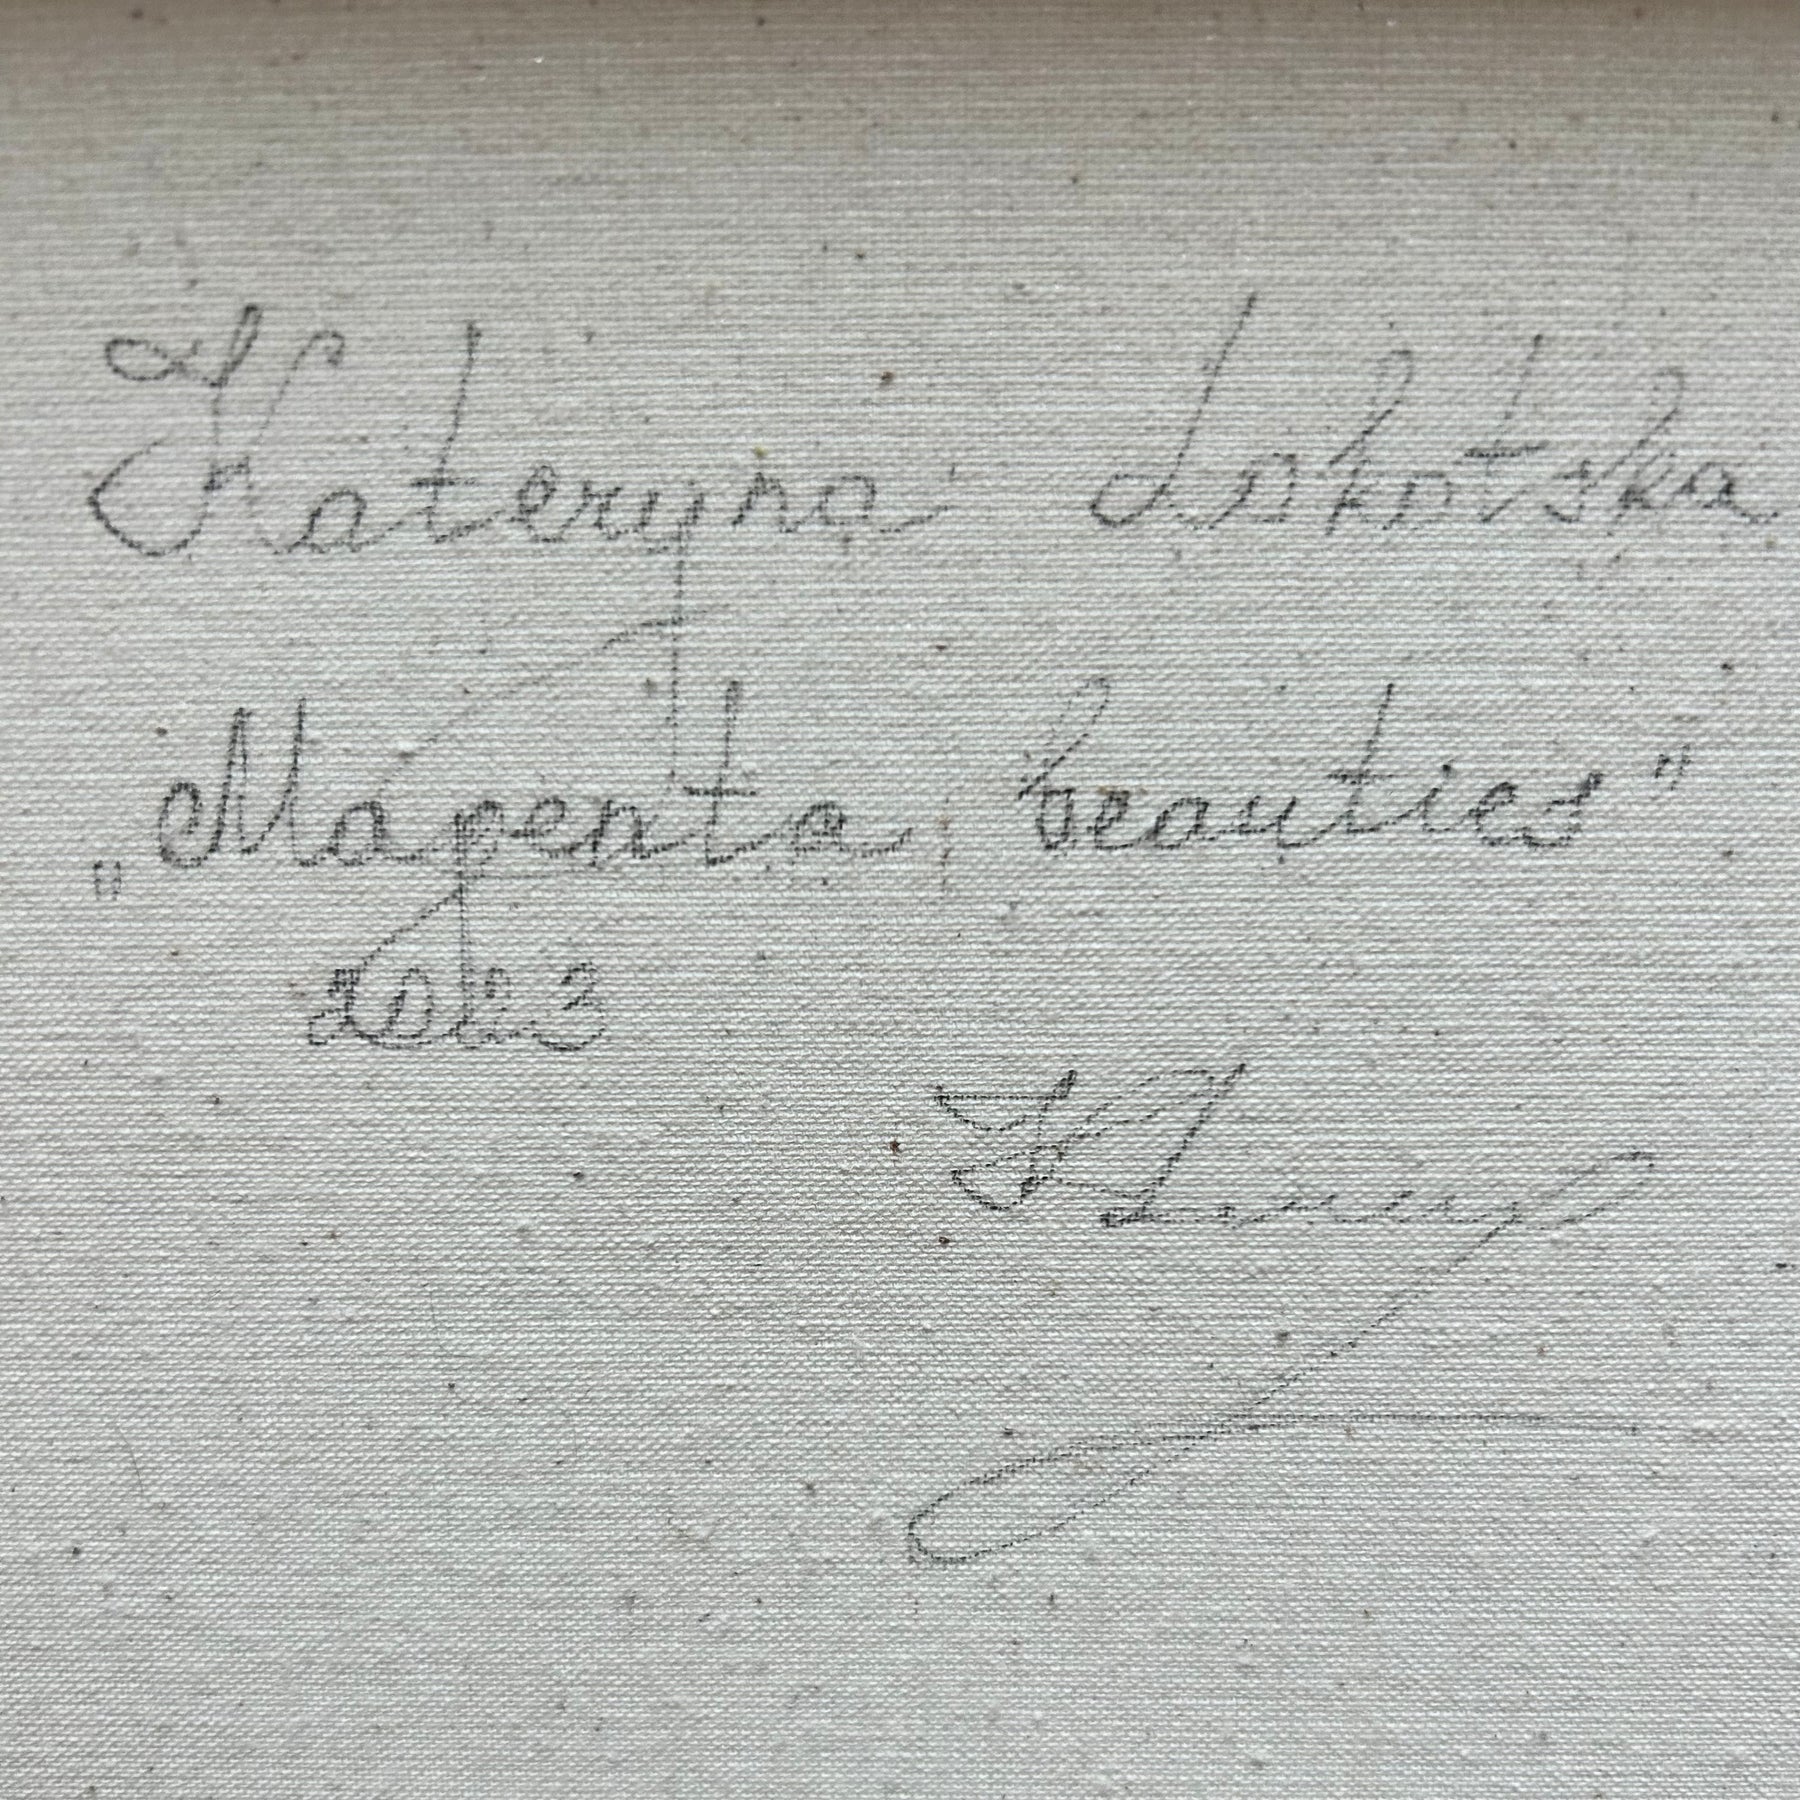 Kateryna Lokotska
„Magenta beauties"
2023